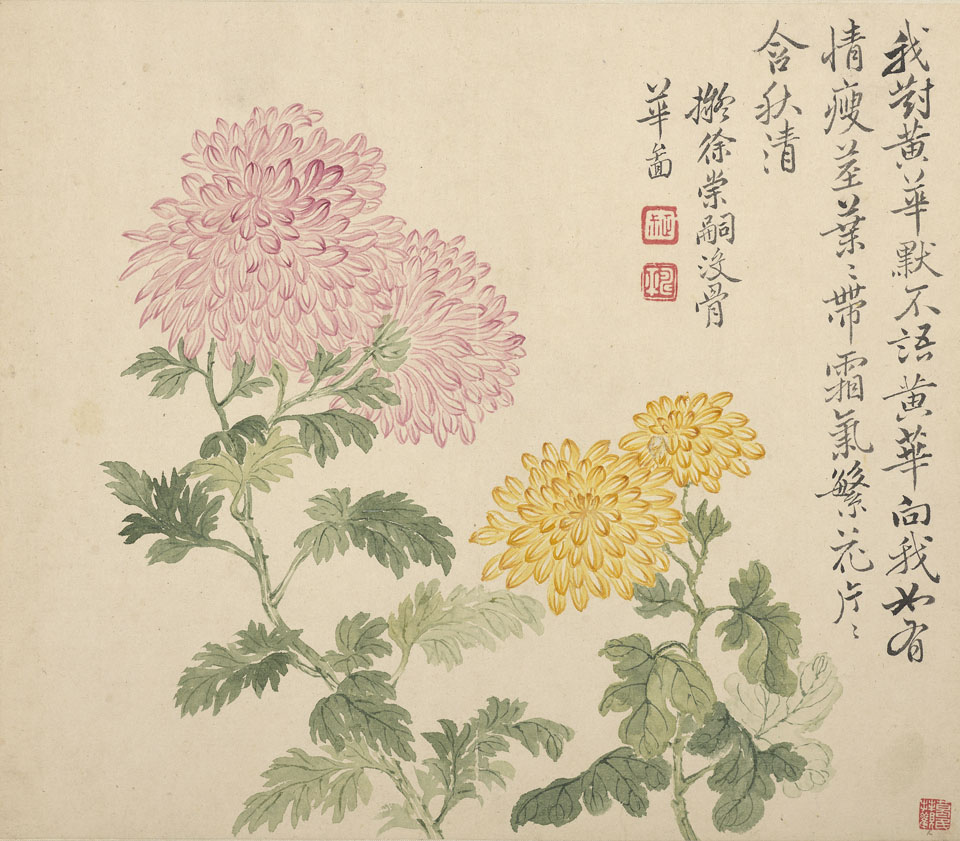 我對黃華默不語黃華向我如有
情瘦莖葉〻帶霜氣繁花片〻
含秋清
擬徐崇嗣沒骨
華圖